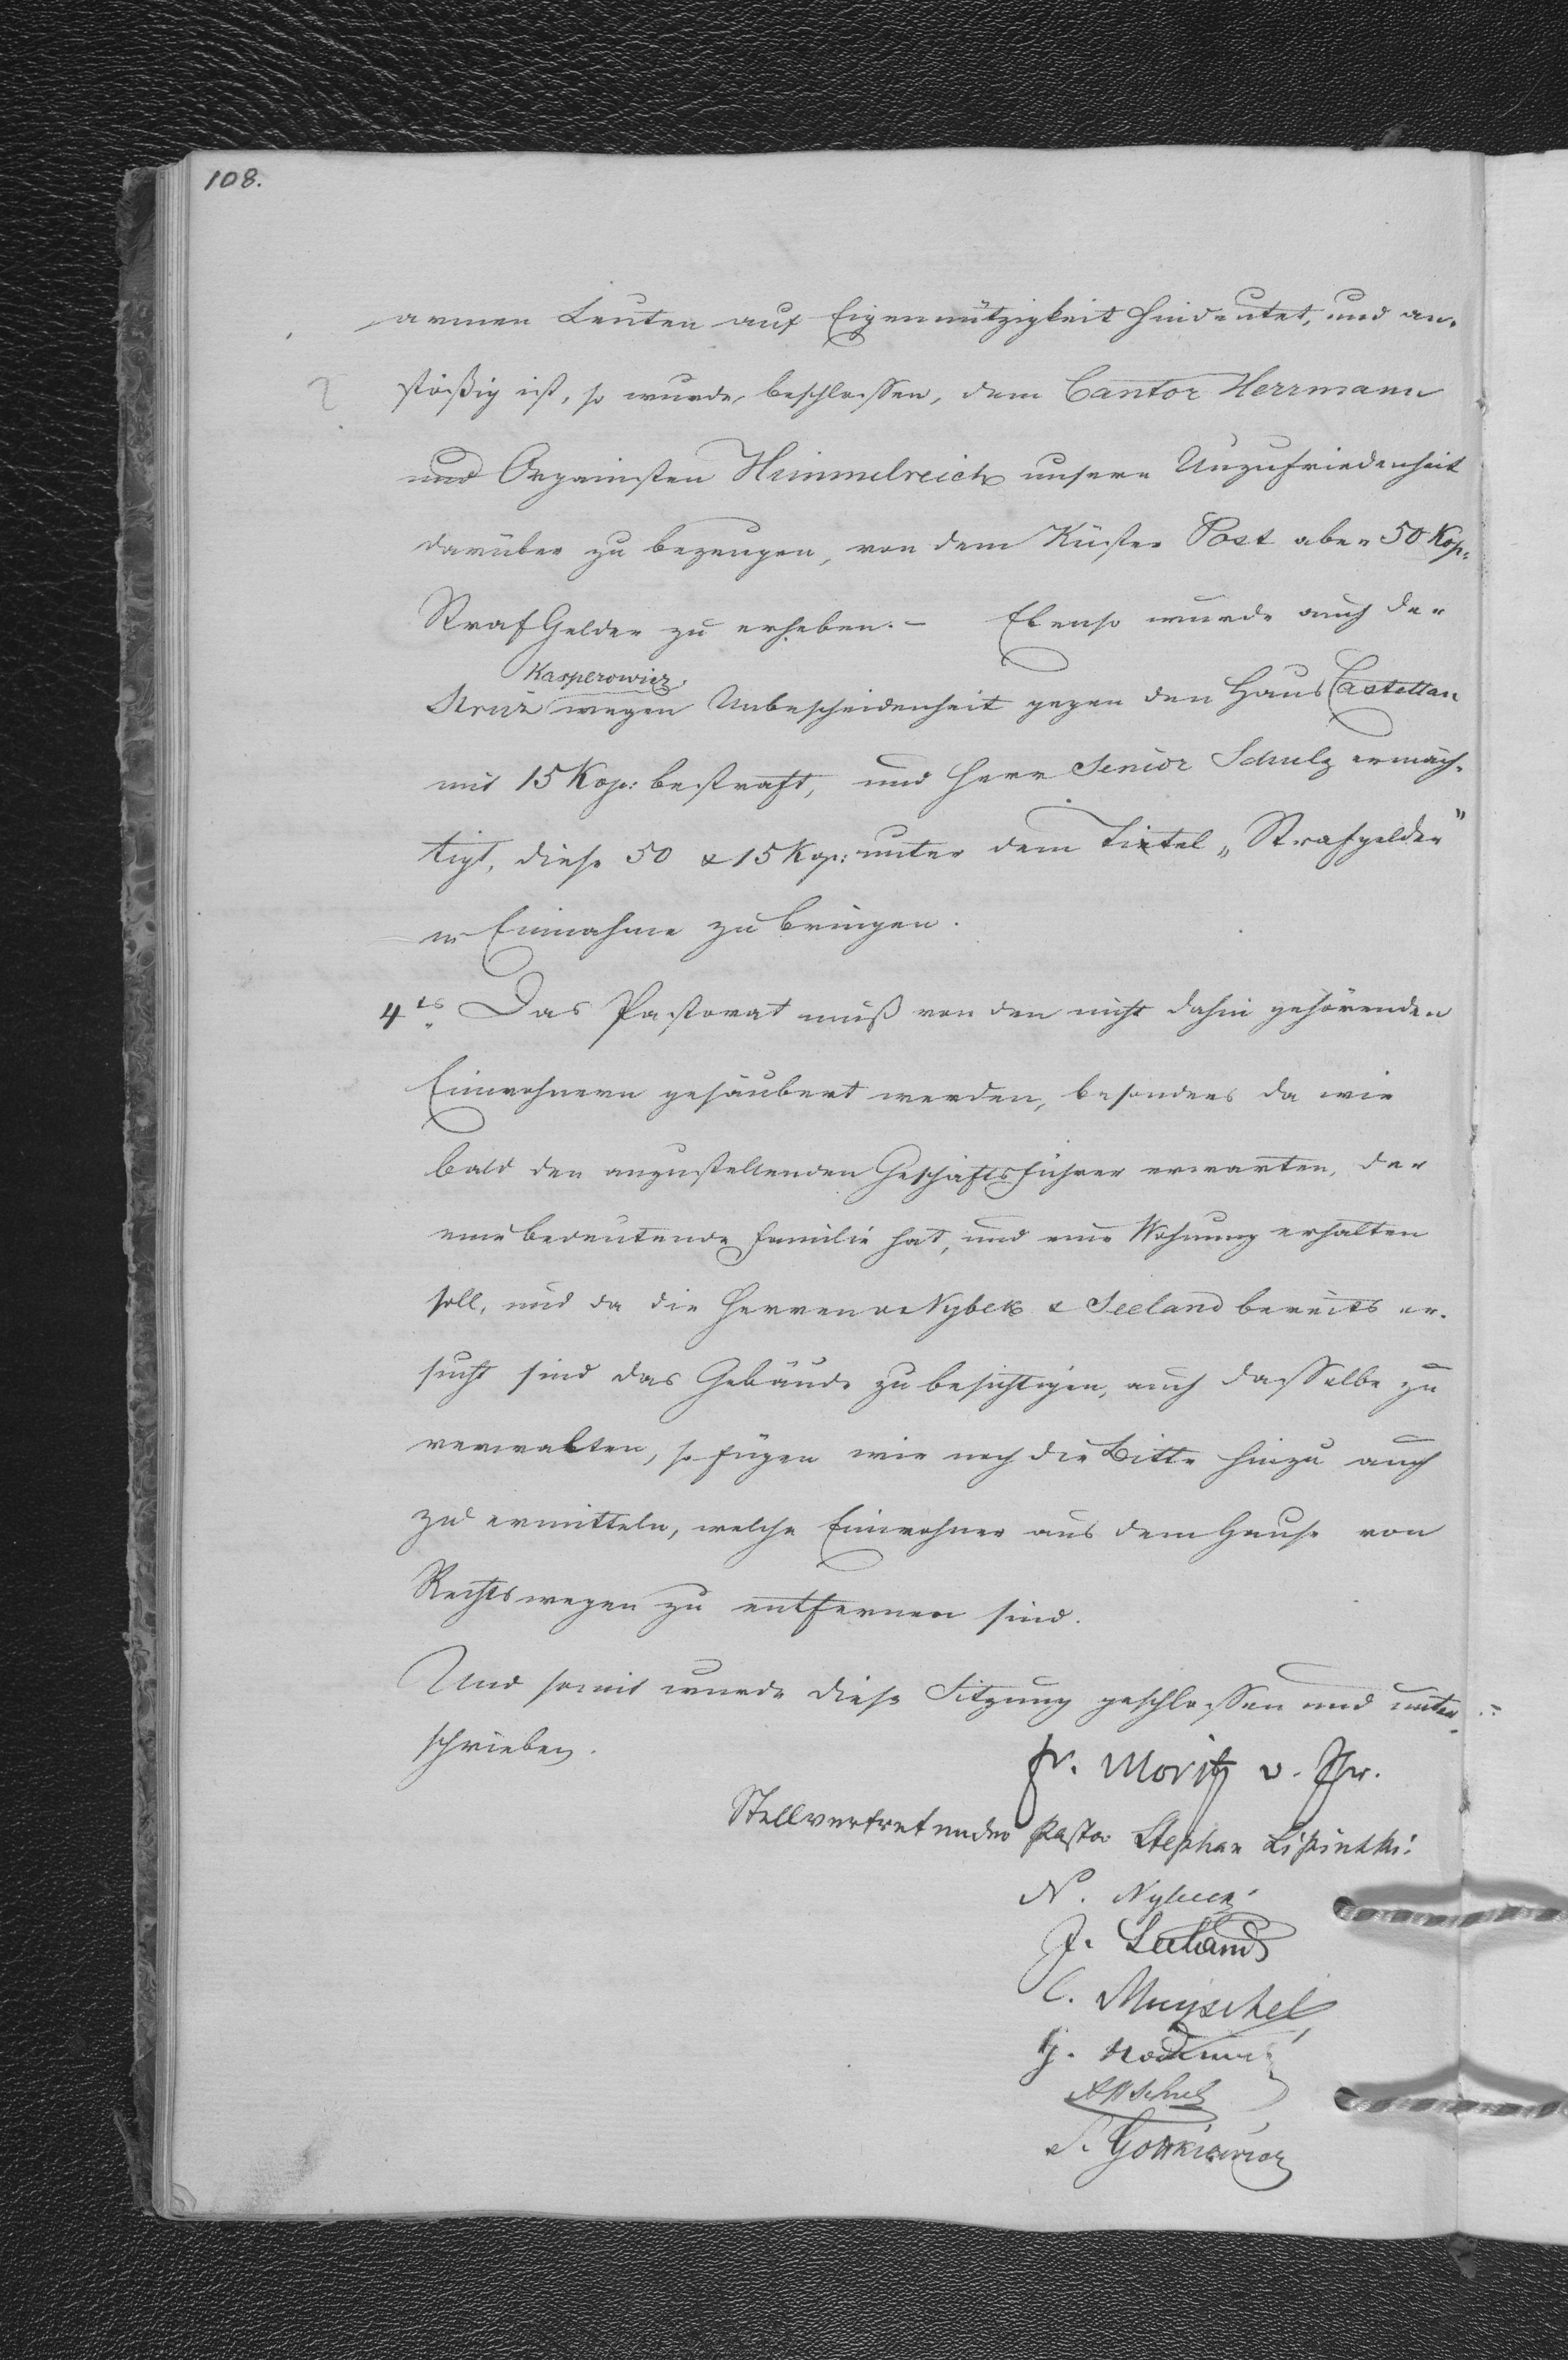 108.
armen Leuten auf Eigennützigkeit hindeutet, und an-
stößig ist, so wurde beschlossen, dem Cantor Herrmann
und Organisten Himmelreich unsere Unzufriedenheit
darüber zu bezeugen, von dem Küster Post aber 50 Kop:
Straf Gelder zu erheben. – Ebenso wurde auch der
Kasperowicz
Struz wegen Unbescheidenheit gegen den Haus Castellan
mit 15 Kop: bestraft, und Herr Senior Schulz ermäch-
tigt, diese 50 & 15 Kop: unter dem Titel „Strafgelder"
in Einnahme zu bringen.
4tes Das Pastorat muß von den nicht dahin gehörenden
Einwohnern gesäubert werden, besonders da wir
bald den anzustellenden Geschäftsführer erwarten, der
eine bedeutende Familie hat, und eine Wohnung erhalten
soll, und da die Herren Nybek & Seeland bereits er-
sucht sind das Gebäude zu besichtigen, auch dasselbe zu
verwalten, so fügen wir noch die Bitte hinzu auch
zu ermitteln, welche Einwohner aus dem Hause von
Rechtswegen zu entfernen sind.
Und somit wurde diese Sitzung geschlossen und unter-
schrieben.
Fr. Moritz v.
Stellvertretender Pastor Stephan Lipinski.
N. Nybeck
J. Seeland
C. Muyschel
G.
Schulz